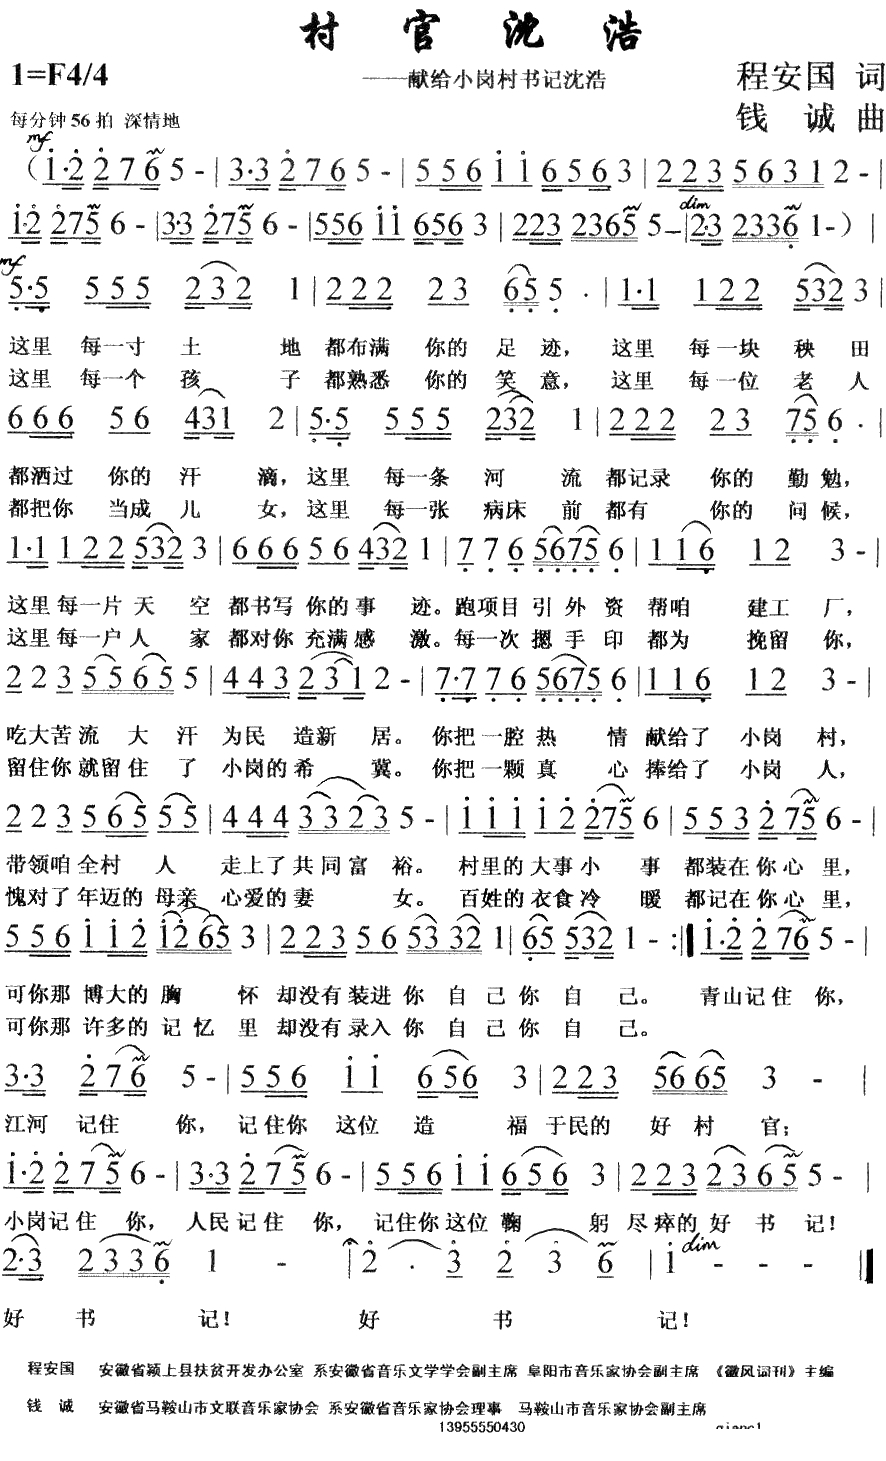 村官沈浩
1=F4/4
——献给小岗村书记沈浩
程安国 词
每分钟56拍 深情地
钱 诚 曲
mf
(1·2 2 7 6 5 - | 3·3 2 7 6 5 - | 5 5 6 1 1 6 5 6 3 | 2 2 3 5 6 3 1 2 - |
dim
1·2 275 6 - | 3·3 275 6 - | 556 11 656 3 | 223 2365 5 - | 2·3 2336 1 - ) |
mf
5·5 5 5 5 2 3 2 1 | 2 2 2 2 3 6 5 5 · | 1·1 1 2 2 5 3 2 3 |
这里 每一寸 土 地 都布满 你的 足 迹, 这里 每一块 秧 田
这里 每一个 孩 子 都熟悉 你的 笑 意, 这里 每一位 老 人
6 6 6 5 6 4 3 1 2 | 5·5 5 5 5 2 3 2 1 | 2 2 2 2 3 7 5 6 · |
都洒过 你的 汗 滴, 这里 每一条 河 流 都记录 你的 勤 勉,
都把你 当成 儿 女, 这里 每一张 病床 前 都有 你的 问 候,
1·1 1 2 2 5 3 2 3 | 6 6 6 5 6 4 3 2 1 | 7 7 6 5 6 7 5 6 | 1 1 6 1 2 3 - |
这里 每一片 天 空 都书写 你的 事 迹。跑项目 引 外 资 帮咱 建工 厂,
这里 每一户 人 家 都对你 充满 感 激。每一次 摁 手 印 都为 挽留 你,
2 2 3 5 5 6 5 5 | 4 4 3 2 3 1 2 - | 7·7 7 6 5 6 7 5 6 | 1 1 6 1 2 3 - |
吃大苦 流 大 汗 为民 造新 居。 你把一腔 热 情 献给了 小岗 村,
留住你 就留 住 了 小岗的 希 冀。 你把一颗 真 心 捧给了 小岗 人,
2 2 3 5 6 5 5 5 | 4 4 4 3 3 2 3 5 - | 1 1 1 1 2 2 7 5 6 | 5 5 3 2 7 5 6 - |
带领咱 全村 人 走上了 共同 富 裕。 村里的 大事 小 事 都装在 你心 里,
愧对了 年迈的 母亲 心爱的 妻 女。 百姓的 衣食 冷 暖 都记在 你心 里,
5 5 6 1 1 2 1 2 6 5 3 | 2 2 3 5 6 5 3 3 2 1 | 6 5 5 3 2 1 - :‖ 1·2 2 7 6 5 - |
可你那 博大的 胸 怀 却没有 装进 你 自 己 你 自 己。 青山 记住 你,
可你那 许多的 记 忆 里 却没有 录入 你 自 己 你 自 己。
3·3 2 7 6 5 - | 5 5 6 1 1 6 5 6 3 | 2 2 3 5 6 6 5 3 - |
江河 记住 你, 记住你 这位 造 福 于民的 好 村 官;
1·2 2 7 5 6 - | 3·3 2 7 5 6 - | 5 5 6 1 1 6 5 6 3 | 2 2 3 2 3 6 5 5 - |
小岗 记住 你, 人民 记住 你, 记住你 这位 鞠 躬 尽瘁的 好 书 记!
dim
2·3 2 3 3 6 1 - | 2 · 3 2 3 6 | 1 - - - ‖
好 书 记! 好 书 记!
程安国 安徽省颍上县扶贫开发办公室 系安徽省音乐文学学会副主席 阜阳市音乐家协会副主席 《徽风词刊》主编
钱 诚 安徽省马鞍山市文联音乐家协会 系安徽省音乐家协会理事 马鞍山市音乐家协会副主席
13955550430